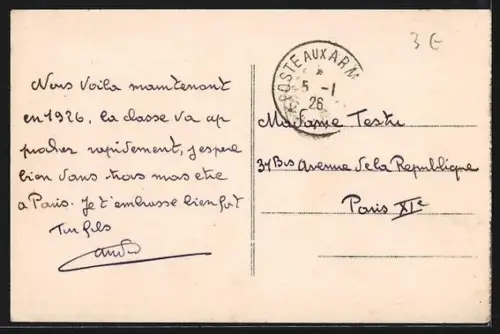 3 €
POSTE AUX ARM
5 - 1
26
Nous Voila maintenant
en 1926, la classe va ap
procher rapidement, j'espere
bien dans trois mois etre
a Paris. Je t'embrasse bien fort
Ton fils
André
Madame Testu
37 Bis Avenue de la Republique
Paris XIe